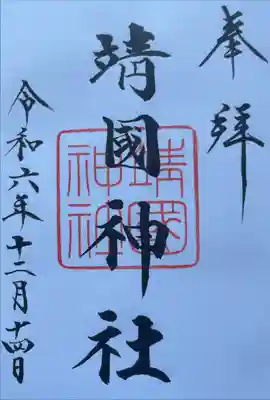 奉拝
靖國神社
靖國神社
令和六年十二月十四日